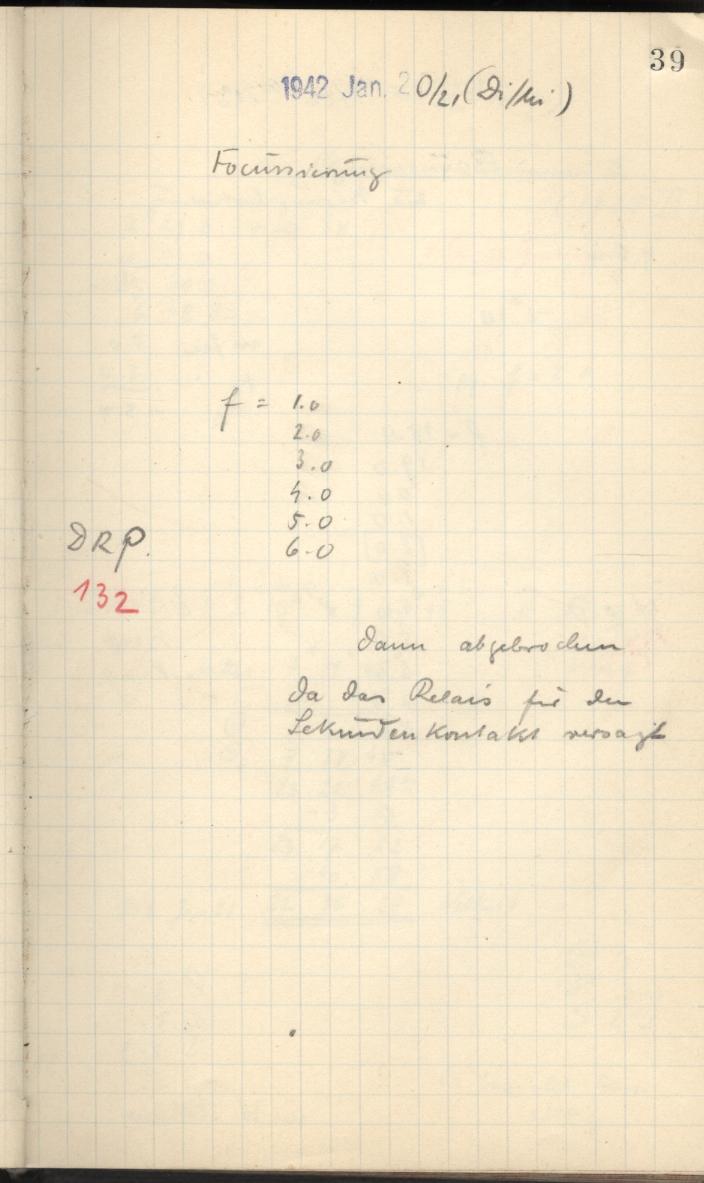 39
1942 Jan. 20/21 (Di/Mi)
Focussierung
f = 1.0
2.0
3.0
4.0
5.0
6.0
DRP.
132
dann abgebrochen
da das Relais für den
Sekundenkontakt versagt